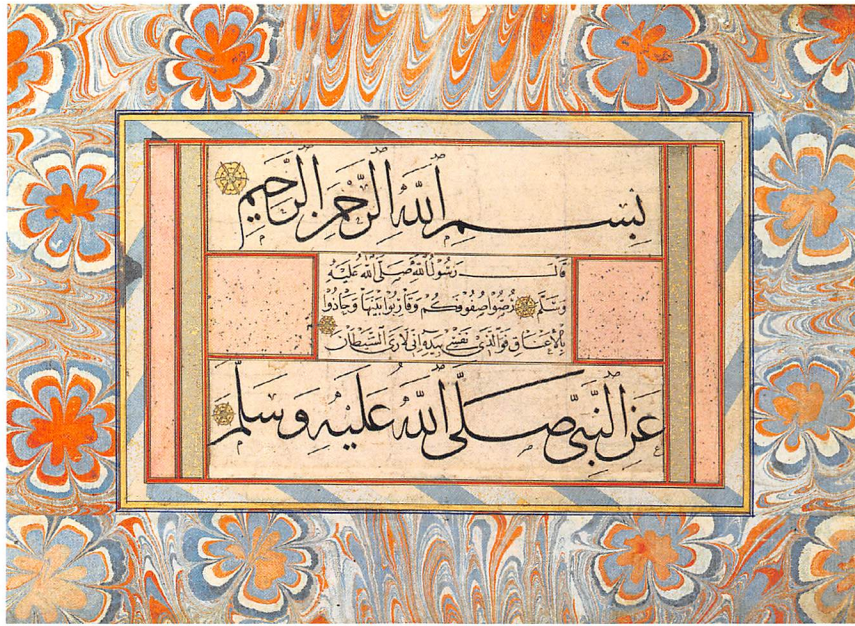 بِسْمِ اللّٰهِ الرَّحْمٰنِ الرَّحِيمِ
قَالَ رَسُولُ اللّٰهِ صَلَّى اللّٰهُ عَلَيْهِ
وَسَلَّمَ رُصُّوا صُفُوفَكُمْ وَقَارِبُوا بَيْنَهَا وَحَاذُوا
بِالْأَعْنَاقِ فَوَالَّذِي نَفْسِي بِيَدِهِ إِنِّي لَأَرَى الشَّيْطَانَ
عَنِ النَّبِيِّ صَلَّى اللّٰهُ عَلَيْهِ وَسَلَّمَ